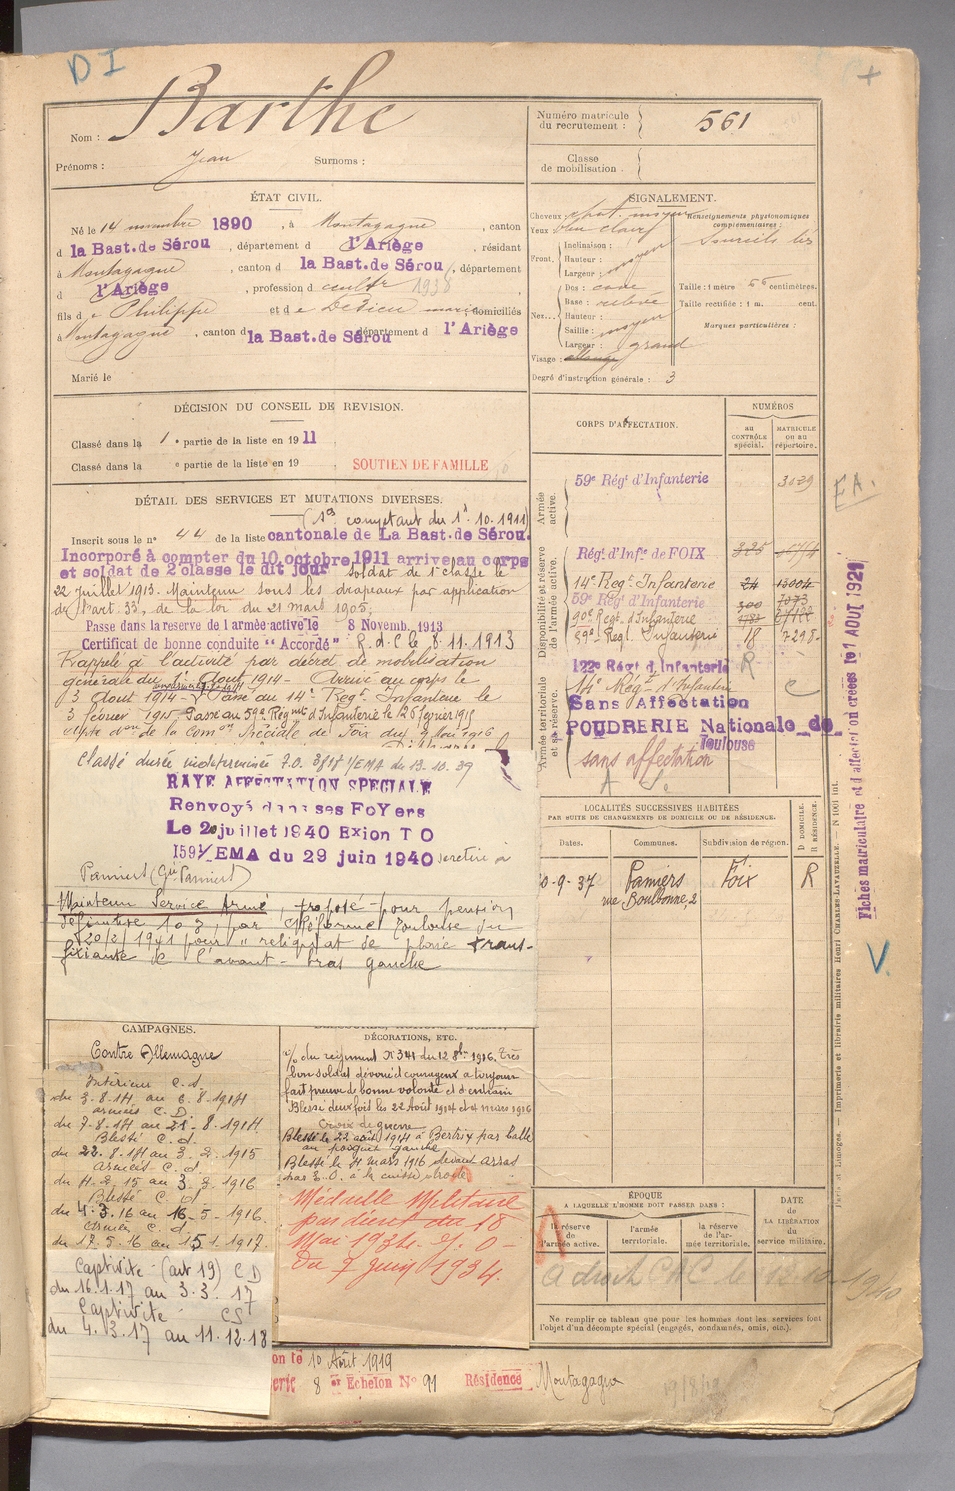 DI
Nom : Barthe
Prénoms : Jean Surnoms :
Numéro matricule du recrutement : 561
Classe de mobilisation :
ÉTAT CIVIL.
Né le 14 novembre 1890, à Montagagne, canton
d la Bast. de Sérou, département d l'Ariège, résidant
à Montagagne, canton d la Bast. de Sérou, département
d l'Ariège, profession d cultr 1938
fils d e Philippe et d e domiciliés
à Montagagne, canton d la Bast. de Sérou département d l'Ariège
Marié le
SIGNALEMENT.
Cheveux : chat. moyen
Yeux bleu clair
Front. Inclinaison :
Hauteur : moyen
Largeur :
Nez... Dos : cave
Base : relevé
Hauteur :
Saillie : moyen
Largeur : grand
Visage :
Degré d'instruction générale : 3
Renseignements physionomiques complémentaires :
Sourcils
Taille : 1 mètre 66 centimètres.
Taille rectifiée : 1 m. cent.
Marques particulières :
DÉCISION DU CONSEIL DE REVISION.
Classé dans la 1e partie de la liste en 1911
Classé dans la e partie de la liste en 19
SOUTIEN DE FAMILLE
DÉTAIL DES SERVICES ET MUTATIONS DIVERSES.
comptant du 1. 10. 1911
Inscrit sous le no 44 de la liste cantonale de La Bast. de Sérou.
Incorporé à compter du 10 octobre 1911 arrivé au corps
et soldat de 2 classe le dit jour soldat de 1e classe le
22 juillet 1913. Maintenu sous les drapeaux par application
de l'art. 33, de la loi du 21 mars 1905;
Passé dans la reserve de l armée active le 8 Novemb. 1913
Certificat de bonne conduite "Accordé" R. d. C le 8. 11. 1913
Rappelé à l'activité par décret de mobilisation
générale du 1er Aout 1914 - Arrivé au corps le
3 Aout 1914 - Passé au 14e Regt Infanterie le
3 février 1915 Passé au 59e Régmt d'Infanterie le 26 février 1915
de la Comon Spéciale de Foix du 9 Mai 1916
Classé durée indéterminée J.O. 3818 1/EMA du 13. 10. 39
RAYE AFFECTATION SPECIALE
Renvoyé dans ses FoYers
Le 20 juillet 1940 Exion T O
1591/EMA du 29 juin 1940 se retire à
Pamiers (Gie Pamiers)
Maintenu Service Armé, proposé pour pension
définitive 10%, par C Réforme Toulouse du
20/2/1941 pour " reliquat de plaie trans-
fixiante de l'avant-bras gauche
CORPS D'AFFECTATION.
NUMÉROS
au CONTRÔLE spécial.
MATRICULE ou au répertoire.
Armée active.
59e Régt d'Infanterie
Disponibilité et réserve de l'armée active.
Régt d'Infie de FOIX
14e Regt Infanterie 24 13004
59e Régt d'Infanterie
90e Regt d'Infanterie
59e Regt Infanterie 18 7298
Armée territoriale et sa réserve.
122e Régt d'Infanterie R
14e Régt d'Infanterie
Sans Affectation
POUDRERIE Nationale de
Toulouse
sans affectation
E A.
Fiches matriculaire et d'affectation créées le 1 AOUT 1929
V.
LOCALITÉS SUCCESSIVES HABITÉES
PAR SUITE DE CHANGEMENTS DE DOMICILE OU DE RÉSIDENCE.
Dates. Communes. Subdivision de région. D DOMICILE. R RÉSIDENCE.
0-9-37 Pamiers Foix R
rue Boulbonne, 2
CAMPAGNES.
Contre Allemagne
Intérieur C. S.
du 3-8-14 au 6-8-1914
armées C. D.
du 7-8-14 au 21-8-1914.
Blessé C. d.
du 22. 8. 14 au 3. 2. 1915
armées C. d.
du 4. 2. 15 au 3. 3. 1916
Blessé C. d
du 4. 3. 16 au 16-5-1916.
armées C. d.
du 17. 5. 16 au 15. 1. 1917.
Captivité (art 19) C D
du 16.1.17 au 3. 3. 17
Captivité CS
du 4. 3. 17 au 11. 12. 18
DÉCORATIONS, ETC.
du régiment No 341 du 12 8bre 1916. Très
bon soldat dévoué et courageux a toujours
fait preuve de bonne volonté et d'entrain
Blessé deux fois les 22 Août 1914 et 4 mars 1916
Croix de guerre
Blessé le 22 août 1914 à Bertrix par balle
au poignet gauche
Blessé le 4 mars 1916 devant Arras
par E. O. à la cuisse droite
Médaille Militaire
par décret du 18
Mai 1934. J. O -
du 7 juin 1934.
ÉPOQUE
A LAQUELLE L'HOMME DOIT PASSER DANS :
la réserve de l'armée active.
l'armée territoriale.
la réserve de l'armée territoriale.
DATE DE LA LIBÉRATION du service militaire.
a droit CAC le 13.10.1940
Ne remplir ce tableau que pour les hommes dont les services font
l'objet d'un décompte spécial (engagés, condamnés, omis, etc.).
Paris et Limoges. — Imprimerie et librairie militaires Henri CHARLES-LAVAUZELLE. — N 1001 int.
on le 10 Août 1919
8 er Echelon No 91 Résidence Montagagne
19/8/19